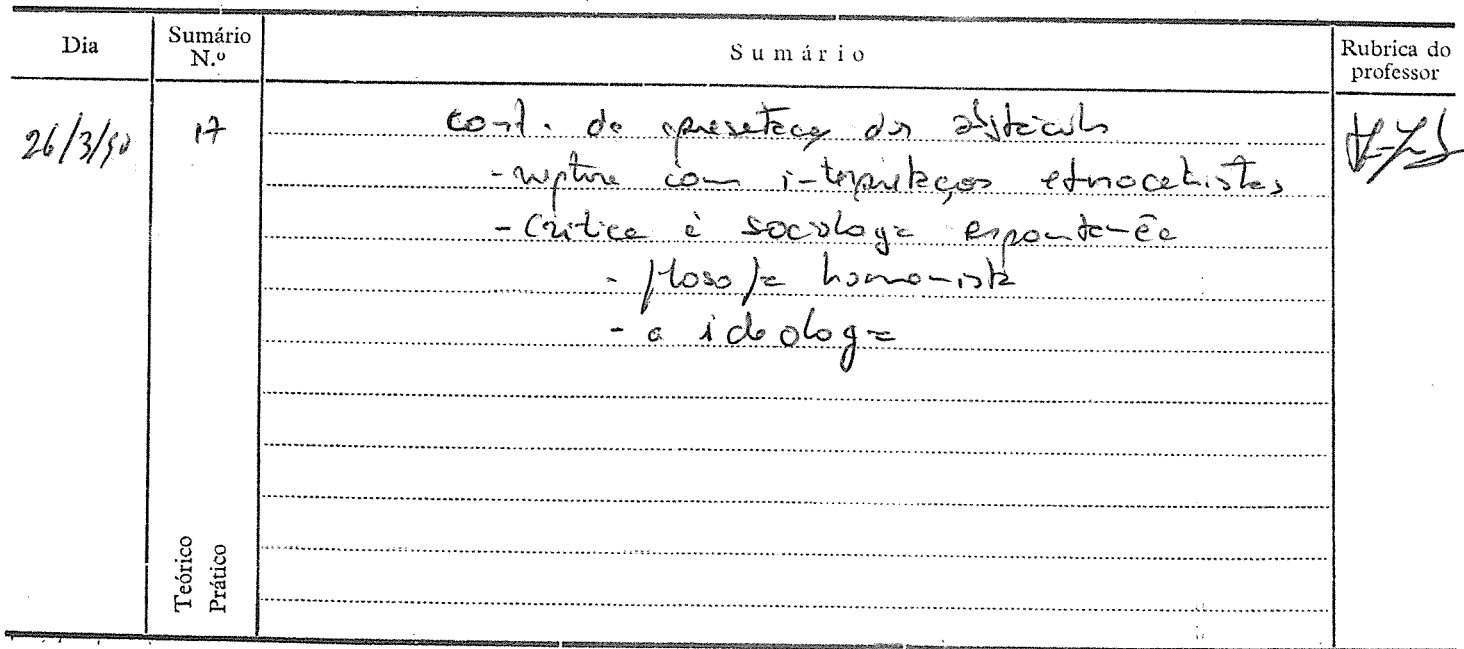 Dia Sumário N.º Sumário Rubrica do professor
26/3/90 17 Cont. da apresentação dos obstáculos
- ruptura com interpretações etnocentristas
- Crítica à sociologia espontânea
- filosofia humanista
- a ideologia
Teórico
Prático